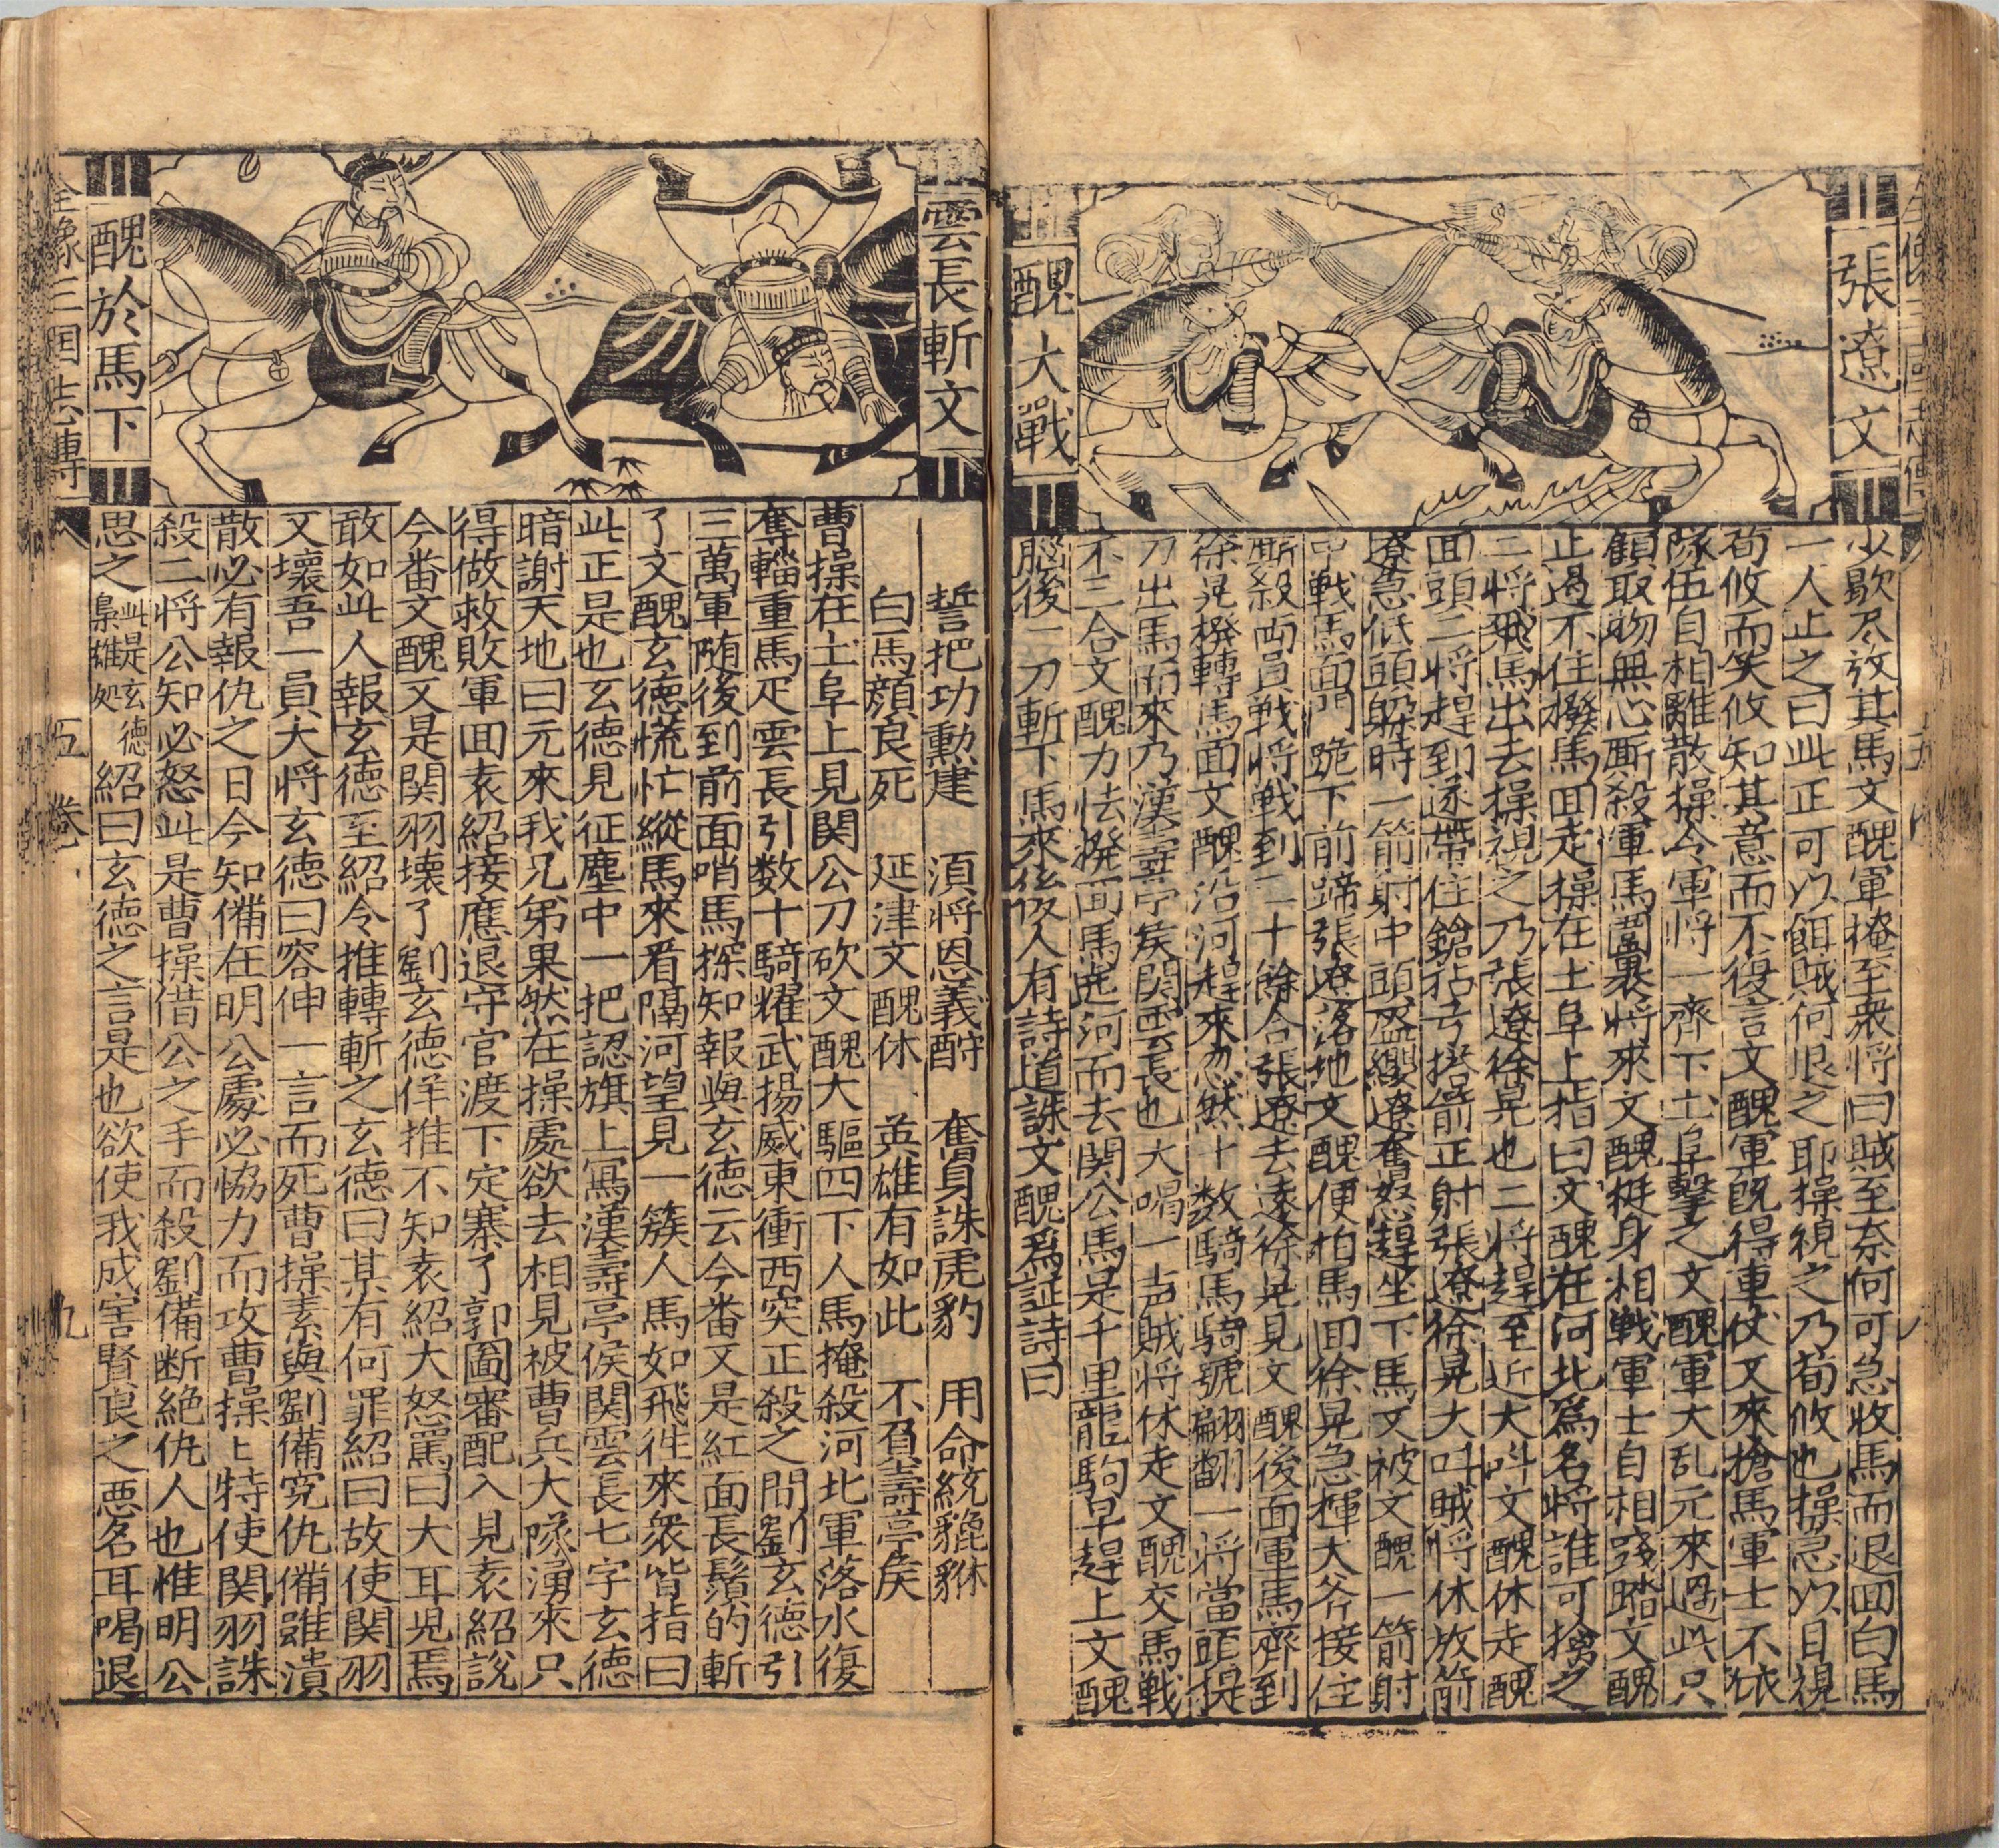 張遼文
醜大戰
少歇尽放其馬文醜軍掩至衆将曰賊至奈何可急收馬而退回白馬
一人止之曰此正可以餌賊何退之耶操視之乃荀攸也操急以目視
荀攸而笑攸知其意而不復言文醜軍既得車仗又來搶馬軍士不依
隊伍自相離散操令軍将一齊下土阜擊之文醜軍大乱元來過此只
顧取物無心厮殺軍馬圍裹将來文醜挺身相戦軍士自相踐踏文醜
止遏不住撥馬回走操在土阜上指曰文醜在河北為名将誰可擒之
二将飛馬出去操視之乃張遼徐晃也二将趕至近大叫文醜休走醜
回頭二将趕到遂帶住鎗拈弓搭箭正射張遼徐晃大叫賊将休放箭
遼急低頭躲時一箭射中頭盔纓遼奮怒趕坐下馬又被文醜一箭射
中戦馬面門跪下前蹄張遼落地文醜便拍馬回徐晃急揮大斧接住
厮殺両員戦将戦到二十餘合張遼去遠徐晃見文醜後面軍馬齊到
徐晃撥轉馬面文醜沿河趕來忽然十数騎馬騎號翩翻一将當頭提
刀出馬而來乃漢壽亭侯関雲長也大喝一声賊将休走文醜交馬戦
不三合文醜力怯撥回馬遶河而去関公馬是千里龍駒早趕上文醜
腦後一刀斬下馬來後人有詩道誅文醜為証詩曰
雲長斬文
醜於馬下
誓把功勲建　湏将恩義酧　奮身誅虎豹　用命統貔貅
白馬顔良死　延津文醜休　英雄有如此　不負壽亭侯
曹操在土阜上見関公刀砍文醜大驅四下人馬掩殺河北軍落水復
奪輜重馬疋雲長引数十騎耀武揚威東衝西突正殺之間劉玄德引
三萬軍随後到前面哨馬探知報與玄德云今番又是紅面長鬚的斬
了文醜玄德慌忙縱馬來看隔河望見一簇人馬如飛徃來衆皆指曰
此正是也玄德見征塵中一把認旗上寫漢壽亭侯関雲長七字玄德
暗謝天地曰元來我兄弟果然在操處欲去相見被曹兵大隊湧來只
得做救敗軍回袁紹接應退守官渡下定寨了郭圖審配入見袁紹説
今番文醜又是関羽壞了劉玄德佯推不知袁紹大怒罵曰大耳児焉
敢如此人報玄德至紹令推轉斬之玄德曰某有何罪紹曰故使関羽
又壞吾一員大将玄德曰容伸一言而死曹操素與劉備䆒仇備雖潰
散必有報仇之日今知備在明公處必恊力而攻曹操上特使関羽誅
殺二将公知必怒此是曹操借公之手而殺劉備断絶仇人也惟明公
思之此是玄德梟雄処紹曰玄德之言是也欲使我成害賢良之悪名耳喝退
全像三国志傳
五卷
九